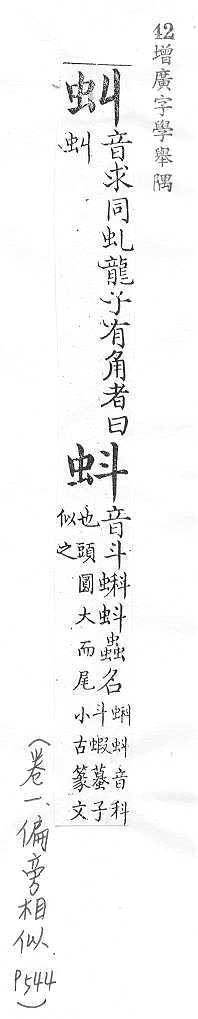 42增廣字學舉隅
虯
音求同虬龍子有角者曰
虯
蚪
音斗蝌蚪蟲名
蝌蚪音科
斗蝦蟇子
也頭圓大而尾小古篆文
似之
（卷一、偏旁相似 P544）